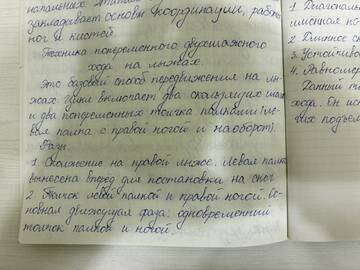 закладывает основы координации, работы
ног и кистей.
Техника попеременного двухшажного
хода на лыжах.
Это базовый способ передвижения на лы-
жах. Цикл включает два скользящих шага
и два попеременных толчка палками (ле-
вая палка с правой ногой и наоборот).
Фазы.
1. Скольжение на правой лыже. Левая палка
вынесена вперед для постановки на снег
2. Толчок левой палкой и правой ногой. Ос-
новная движущая фаза: одновременный
толчок палкой и ногой.
1. Диагональ
менная но
2. Длинное ск
3. Устойчиво
4. Равноме
Данный т
хода. Он ис
вых подъем